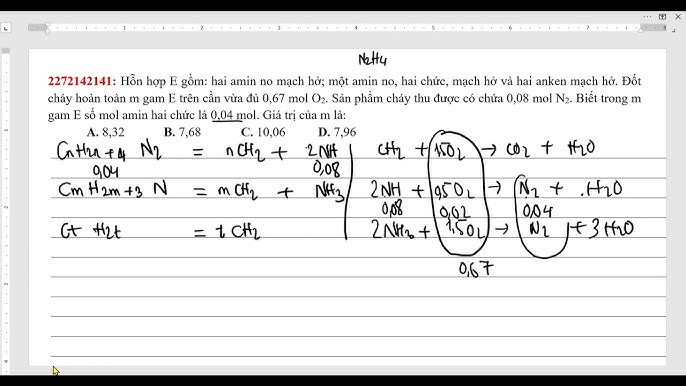 N2H4
2272142141: Hỗn hợp E gồm: hai amin no mạch hở; một amin no, hai chức, mạch hở và hai anken mạch hở. Đốt
cháy hoàn toàn m gam E trên cần vừa đủ 0,67 mol O2. Sản phẩm cháy thu được có chứa 0,08 mol N2. Biết trong m
gam E số mol amin hai chức là 0,04 mol. Giá trị của m là:
A. 8,32 B. 7,68 C. 10,06 D. 7,96
CnH2n+4 N2 = nCH2 + 2NH CH2 + 1,5O2 → CO2 + H2O
0,04 0,08
CmH2m+3 N = mCH2 + NH3 2NH + 0,5O2 → N2 + H2O
0,08 0,02 0,04
CtH2t = tCH2 2NH3 + 1,5O2 → N2 + 3H2O
0,67